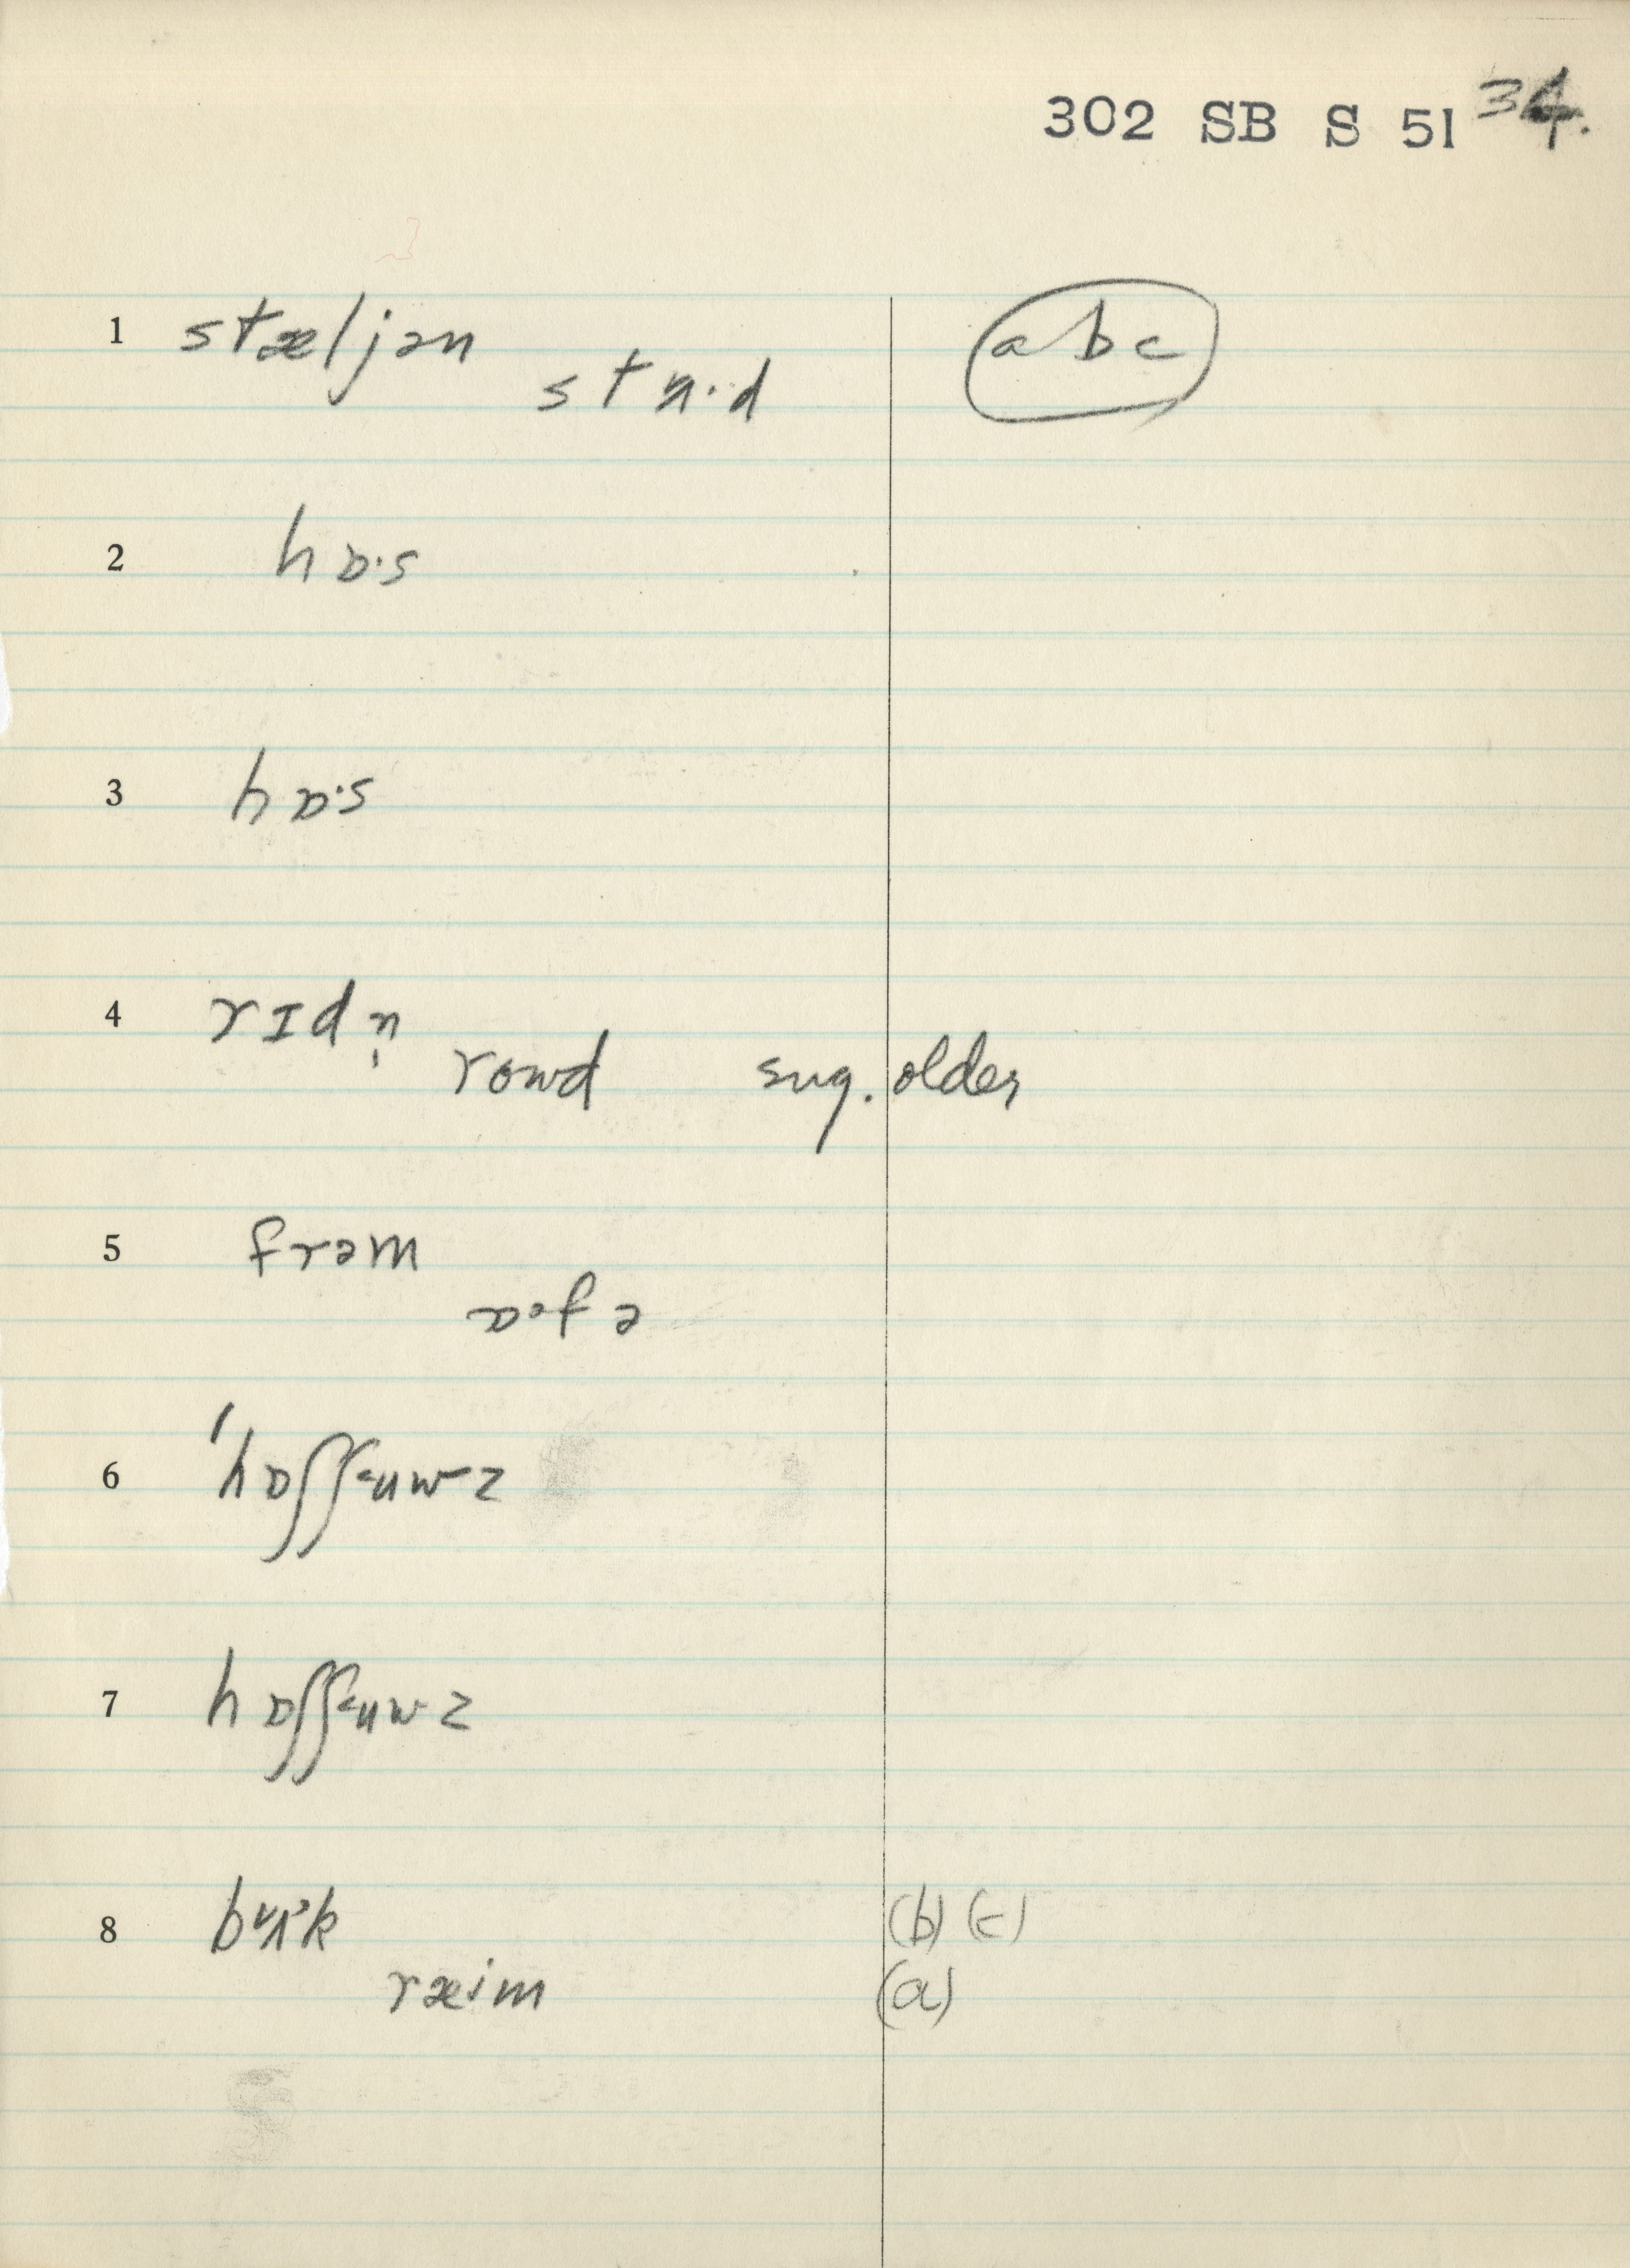 302 SB S 51 34.
1 stæljən abc
stɑ·d
2 hɒ·s
3 hɒ·s
4 rɪdn̩
rowd sug. older
5 frəm
ɒ·fə
6 ˈhɒʃʃuwz
7 hɒʃʃuwz
8 (b) (c)
ræim (a)